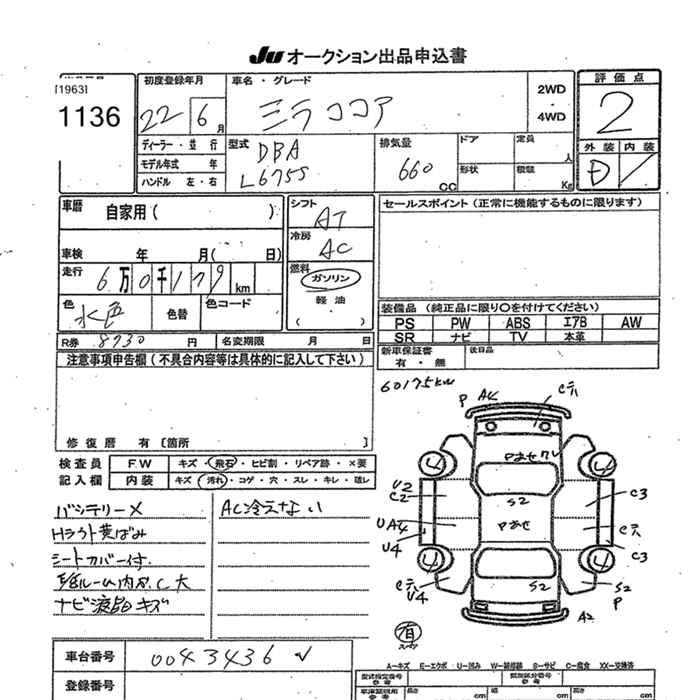 JU オークション出品申込書
[1963]
1136
初度登録年月
22 6月
車名・グレード
ミラココア
2WD
・
4WD
評価点
2
外装 内装
D
ディーラー・並 行
モデル年式 年
ハンドル 左・右
型式
DBA
L675S
排気量
660 cc
ドア
定員
人
形状
積載
Kg
車歴
自家用( )
車検 年 月( 日)
走行
6万0千179km
色
水色
色替
色コード
シフト
AT
冷房
AC
燃料
ガソリン
軽油
( )
セールスポイント(正常に機能するものに限ります)
装備品(純正品に限り〇を付けてください)
PS PW ABS エアB AW
SR ナビ TV 本革
新車保証書
有・無
後日品
R券 8730 円
名変期限 月 日
注意事項申告欄(不具合内容等は具体的に記入して下さい)
修復歴 有〔箇所 〕
検査員
記入欄
FW キズ・飛石・ヒビ割・リペア跡・×要
内装 キズ・汚れ・コゲ・穴・スレ・キレ・破レ
バッテリー×
Hライト黄ばみ
シートカバー付
ナビ液晶キズ
AC冷えない
60175km
P
C穴
U2
C2
UA4
U4
S2
Pあせ
C3
C穴
C3
C穴
U4
S2
S2
P
A2
4
4
4
4
有
車台番号
0043436
登録番号
A―キズ E―エクボ U―凹み W―補修跡 S―サビ C―腐食 XX―交換済
型式指定番号
参考
類別区分番号
参考
長さ
cm
幅
cm
高さ
cm